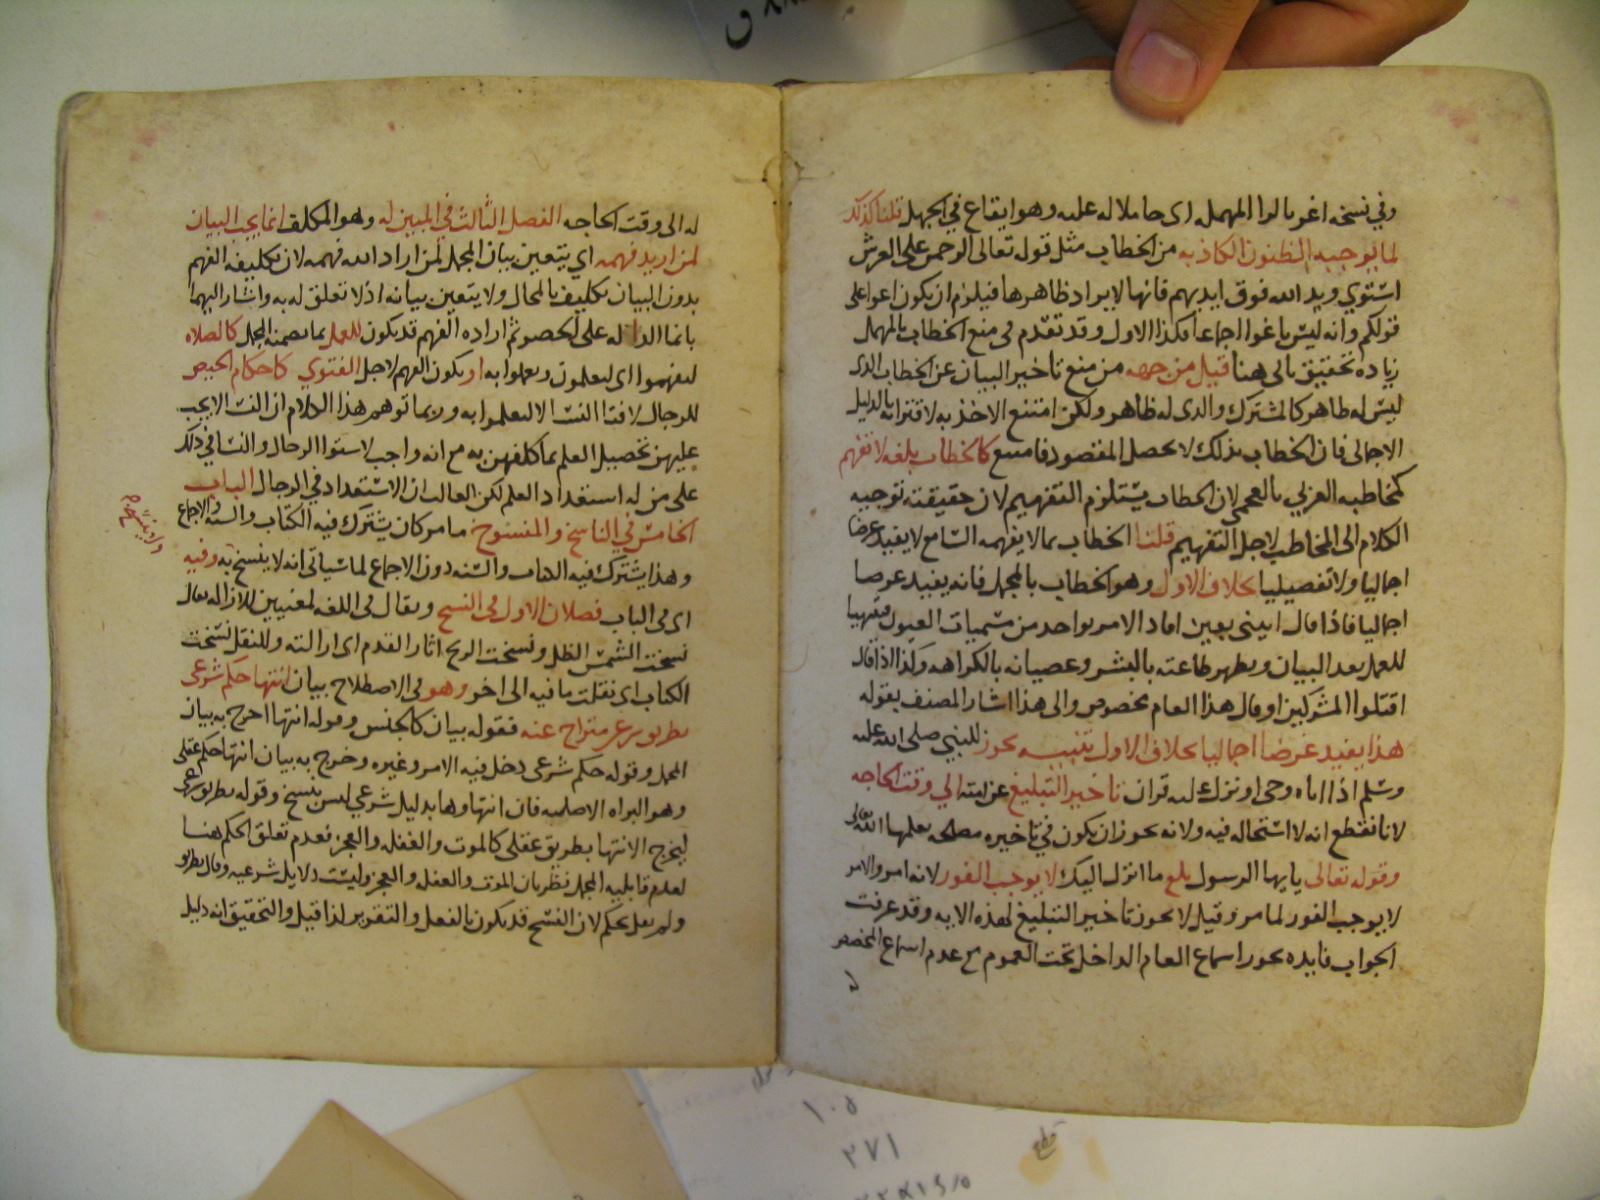 وفي نسخه اغوا بالوا المهمله اى حاملا له عليه وهو ايقاع في الجهل قلنا كذلك
لما يوجبه الظنون الكاذبه من الخطاب مثل قوله تعالى الرحمن على العرش
استوي ويد الله فوق ايديهم فانها لا يراد ظاهرها فيلزم ان يكون اغوا على
قولكم وانه ليس باغوا اجماعا فكذا الاول وقد تقدم في منع الخطاب بالمهمل
زياده تحقيق ياتى هنا قيل من جهه من منع تاخير البيان عن الخطاب الذى
ليس له ظاهر كالمشترك والذى له ظاهر ولكن امتنع الاخذ به لاقترانه بالدليل
الاجمالى فان الخطاب بذلك لا يحصل المقصود فامتنع كالخطاب بلغه لا تفهم
كمخاطبه العربي بالعجمى لان الخطاب يستلزم التفهيم لان حقيقته توجيه
الكلام الى المخاطب لاجل التفهيم قلنا الخطاب بما لا يفهمه السامع لا يفيد غرضا
اجماليا ولا تفصيليا بخلاف الاول وهو الخطاب بالمجمل فانه يفيد غرضا
اجماليا فاذا قال ايتنى بعين افاد الامر بواحد من مسميات العيون فيتهيا
للعمل بعد البيان ويظهر طاعته بالبشر وعصيانه بالكراهه وكذا اذا قال
اقتلوا المشركين او قال هذا العام مخصوص والى هذا اشار المصنف بقوله
هذا يفيد غرضا اجماليا بخلاف الاول تنبيه يجوز للنبي صلى الله عليه
وسلم اذا اتاه وحى او نزل اليه قران تاخير التبليغ عن امته الي وقت الحاجه
لانا نقطع انه لا استحاله فيه ولانه يجوز ان يكون في تاخيره مصلحه يعلمها الله تعالى
وقوله تعالى يا يها الرسول بلغ ما انزل اليك لا يوجب الفور لانه امر والامر
لا يوجب الفور لما مر وقيل لا يجوز تاخير التبليغ لهذه الايه وقد عرفت
الجواب فايده يجوز اسماع العام الداخل تحت العموم مع عدم اسماع المخصص
له الى وقت الحاجه الفصل الثالث في المبين له وهو المكلف انما يجب البيان
لمن اريد فهمه اي يتعين بيان المجمل لمن اراد الله فهمه لان تكليفه الفهم
بدون البيان تكليف بالمحال ولا يتعين بيانه اذ لا تعلق له به واشار اليهما
بانما الداله على الحصر ثم اراده الفهم قد يكون للعمل بما تضمنه المجمل كالصلاه
ليفهموا اى ليعلمون ويعملوا به او يكون الفهم لاجل الفتوي كاحكام الحيض
للرجال لافتا النسا لا ليعملوا به وربما توهم هذا الكلام ان النسا لا يجب
عليهن تحصيل العلم بما كلفهن به مع انه واجب لاستوا الرجال والنسا في ذلك
على من له استعداد العلم لكن الغالب ان الاستعداد في الرجال الباب
الخامس في الناسخ والمنسوخ ما مر كان يشترك فيه الكتاب والسنه والاجماع
وهذا يشترك فيه الكتاب والسنه دون الاجماع لما سياتى انه لا ينسخ به وفيه
اى فى الباب فصلان الاول فى النسخ ويقال فى اللغه لمعنيين للازاله يقال
نسخت الشمس الظل ونسخت الريح اثار القدم اى ازالته وللنقل نسخت
الكتاب اى نقلت ما فيه الى اخر وهو في الاصطلاح بيان انتها حكم شرعى
بطريق شرعى متراخ عنه فقوله بيان كالجنس وقوله انتها اخرج به بيان
المجمل وقوله حكم شرعى دخل فيه الامر وغيره وخرج به بيان انتها حكم عقلى
وهو البراه الاصليه فان انتهاوها بدليل شرعي ليس بنسخ وقوله بطريق شرعى
ليخرج الانتها بطريق عقلى كالموت والغفله والعجز فعدم تعلق الحكم هنا
لعدم قابليه المحل نظر بان الموت والغفله والعجز وليست دلايل شرعيه وقال بطريق
ولم يقل بحكم لان النسخ قد يكون بالفعل والتقرير لذا قيل والتحقيق انه دليل
١٠٥
٢٧١